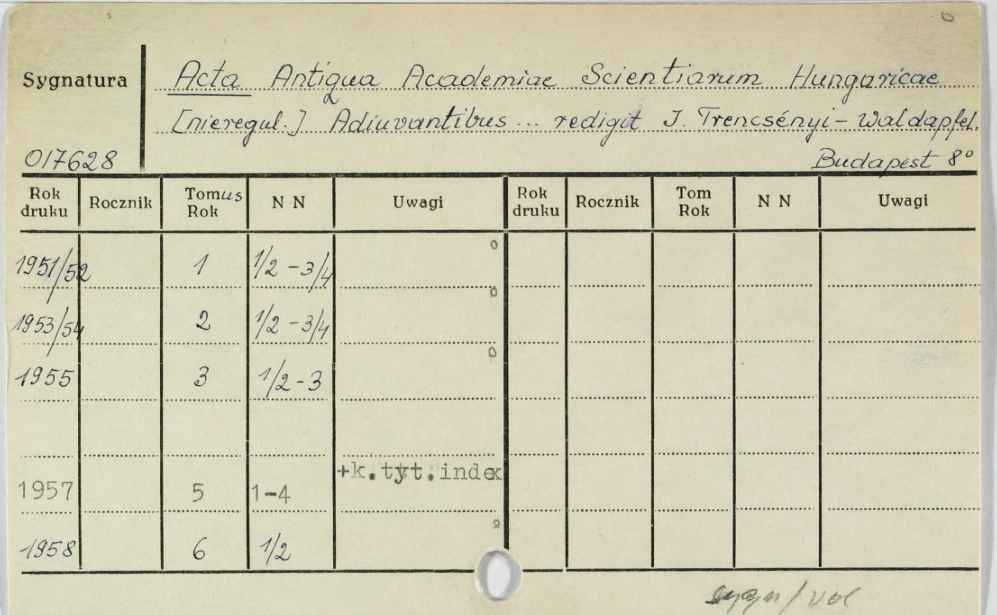 Sygnatura Acta Antiqua Academiae Scientiarum Hungaricae
[nieregul.] Adiuvantibus ... redigit J. Trencsényi-Waldapfel.
017628 Budapest 8°
Rok druku Rocznik Tomus Rok N N Uwagi Rok druku Rocznik Tom Rok N N Uwagi
1951/52 1 1/2 - 3/4
1953/54 2 1/2 - 3/4
1955 3 1/2 - 3
1957 5 1-4 +k.tyt.index
1958 6 1/2
/ vol